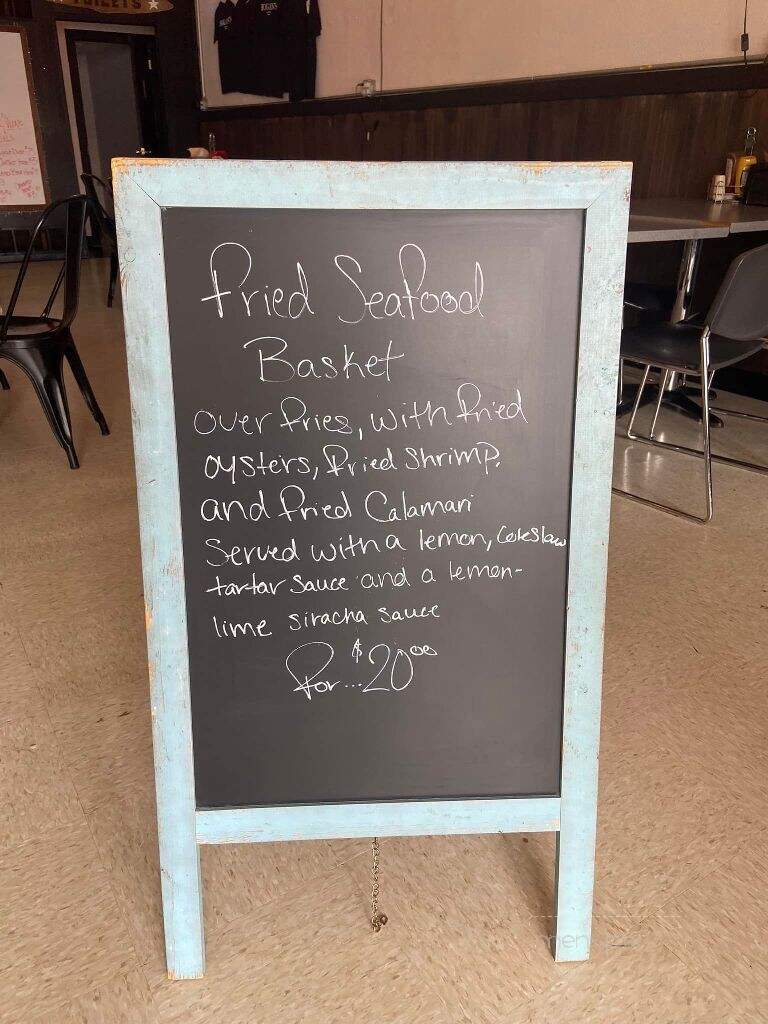 TOILETS
Fried Seafood
Basket
over fries, with fried
oysters, fried shrimp,
and fried Calamari
Served with a lemon, Coleslaw
tartar sauce and a lemon-
lime siracha sauce
For... $20.00